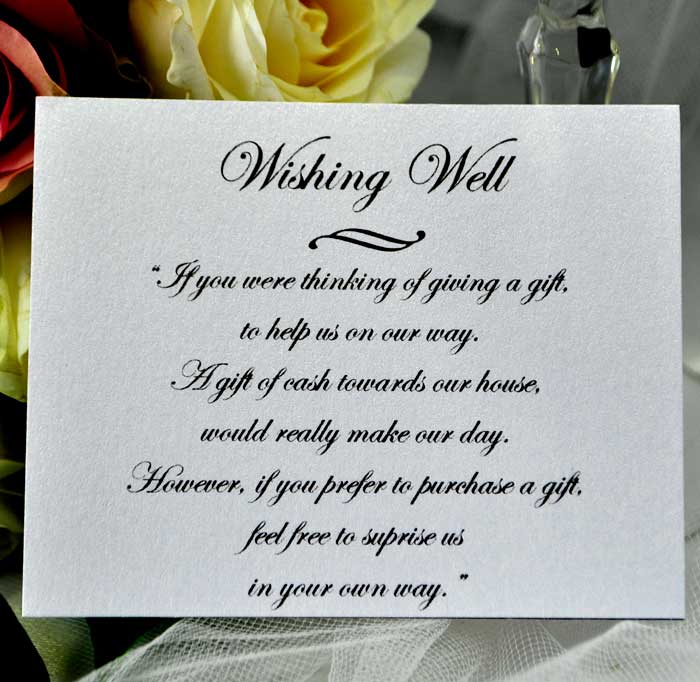 Wishing Well
“If you were thinking of giving a gift,
to help us on our way.
A gift of cash towards our house,
would really make our day.
However, if you prefer to purchase a gift,
feel free to suprise us
in your own way.”